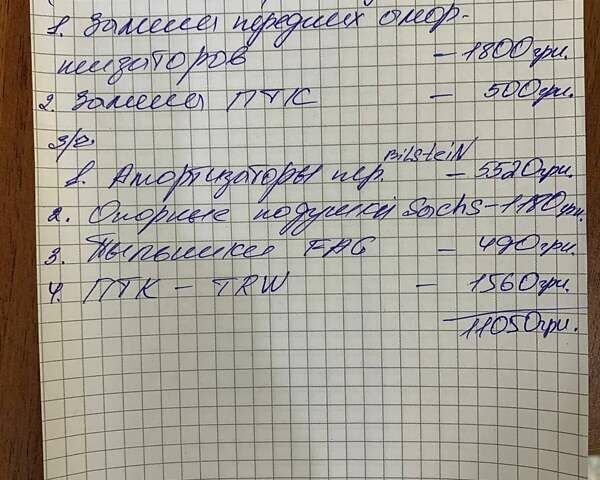 1. Замена передних амор-
тизаторов - 1800грн.
2. Замена ПТК - 500грн.
З/ч.
1. Амортизаторы пер. BilsteiN - 5520грн.
2. Опорные подушки Sachs - 1180грн.
3. Пыльники FAG - 490грн.
4. ПТК - TRW - 1560грн.
11050грн.